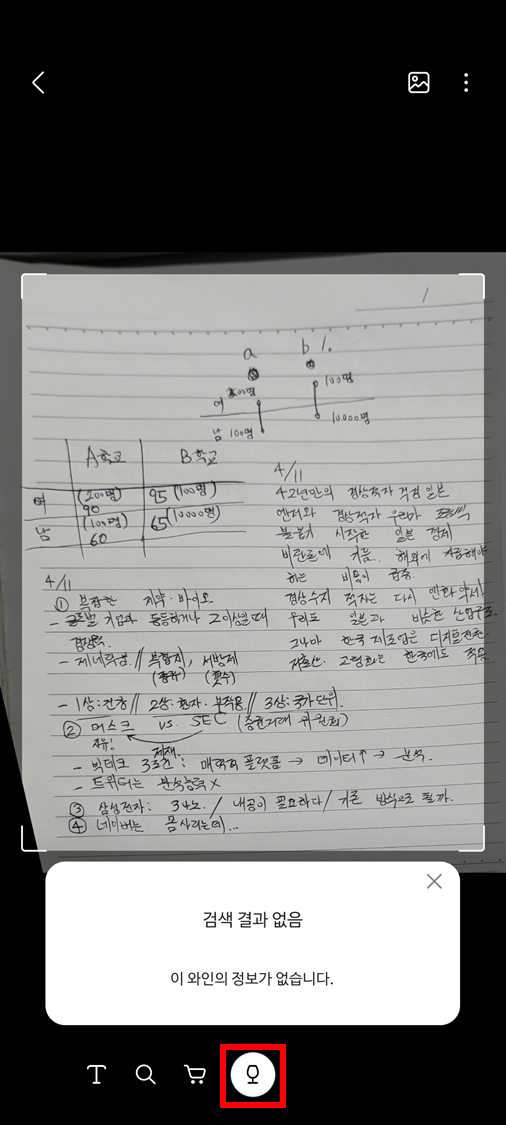 a
b %.
여 200명
100명
남 100명
10000명
A학교
B학교
여
(200명)
90
95 (100명)
남
(100명)
60
65 (10000명)
4/11
42년만의 경상적자 걱정 일본
엔저와 경상적자 우려가
불붙기 시작한 일본 경제
비관론에 기름. 해외에 지급해야
하는 비용이 급증.
경상수지 적자는 다시 엔화 약세
우리도 일본과 비슷한 산업구조
그나마 한국 제조업은 디지털전환
저출산. 고령화는 한국에도 적용
4/11
① 복잡한 제약·바이오
- 글로벌 기업과 동등하거나 그 이상일 때
경쟁력.
- 제네릭성 // 복합제, 서방제
(종류) (횟수)
- 1상:건강 // 2상:환자·부작용 // 3상:국가단위.
② 머스크 vs. SEC (증권거래 위원회)
자유! 제재.
- 빅테크 3조건: 매력적 플랫폼 → 데이터↑ → 분석.
- 트위터는 분석능력 X
③ 삼성전자: 3나노. / 내공이 필요하다 / 기존 방식으로 될까.
④ 네이버는 몸사리는데...
검색 결과 없음
이 와인의 정보가 없습니다.
T